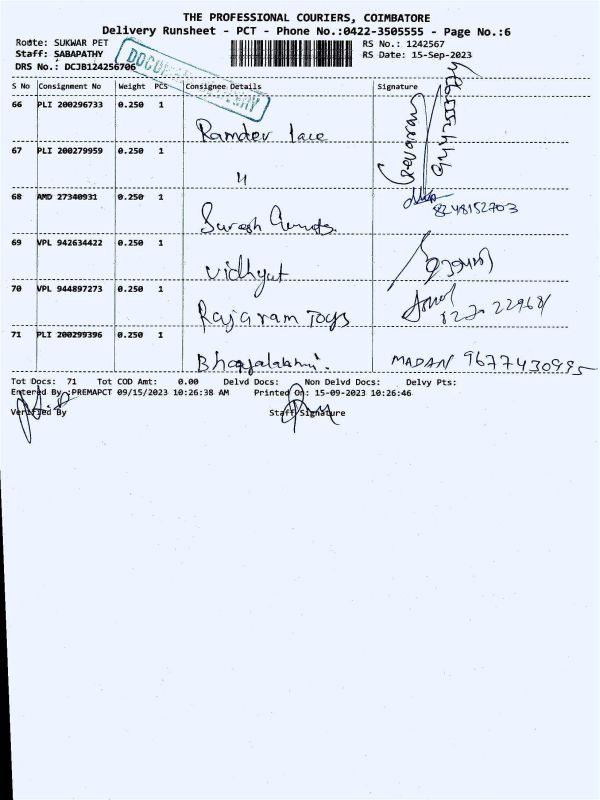 THE PROFESSIONAL COURIERS, COIMBATORE
Delivery Runsheet - PCT - Phone No.:0422-3505555 - Page No.:6
Route: SUKWAR PET RS No.: 1242567
Staff: SABAPATHY RS Date: 15-Sep-2023
DRS No.: DCJB124256706
S No Consignment No Weight PCS Consignee Details Signature
66 PLI 200296733 0.250 1
Ramdev lace
67 PLI 200279959 0.250 1
"
68 AMD 27340931 0.250 1
Suresh 8248152703
69 VPL 942634422 0.250 1
Vidhyut
70 VPL 944897273 0.250 1
Rajaram Toys
71 PLI 200299396 0.250 1
MADAN 9677430995
Tot Docs: 71 Tot COD Amt: 0.00 Delvd Docs: Non Delvd Docs: Delvy Pts:
Entered By :PREMAPCT 09/15/2023 10:26:38 AM Printed On: 15-09-2023 10:26:46
Verified By Staff Signature